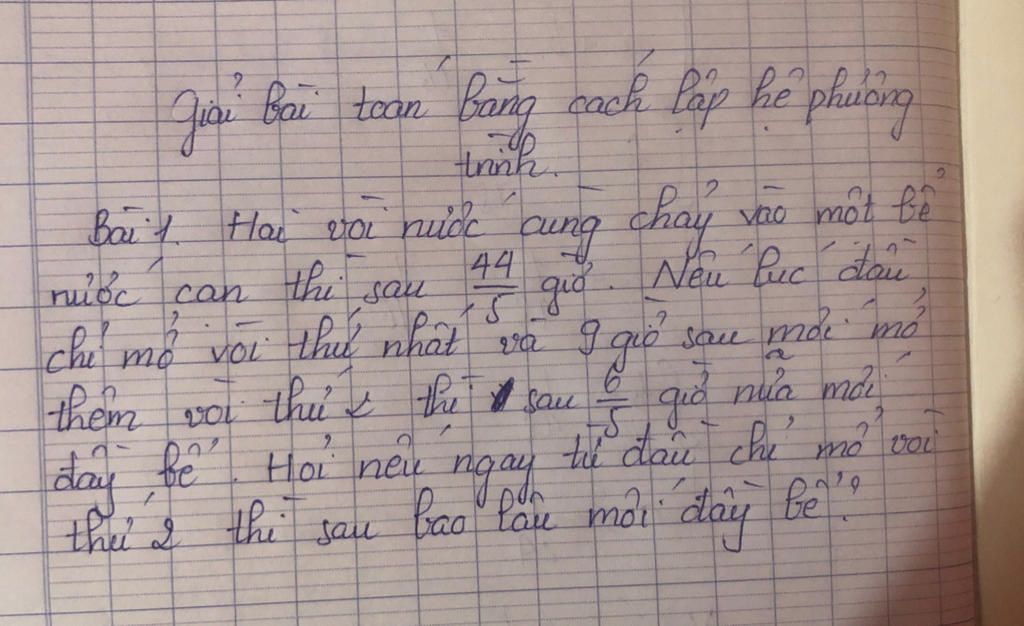 Giải bài toán bằng cách lập hệ phương
trình.
Bài 1. Hai vòi nước cùng chảy vào một bể
nước cạn thì sau 44/5 giờ. Nếu lúc đầu
chỉ mở vòi thứ nhất và 9 giờ sau mới mở
thêm vòi thứ 2 thì sau 6/5 giờ nữa mới
đầy bể. Hỏi nếu ngay từ đầu chỉ mở vòi
thứ 2 thì sau bao lâu mới đầy bể?